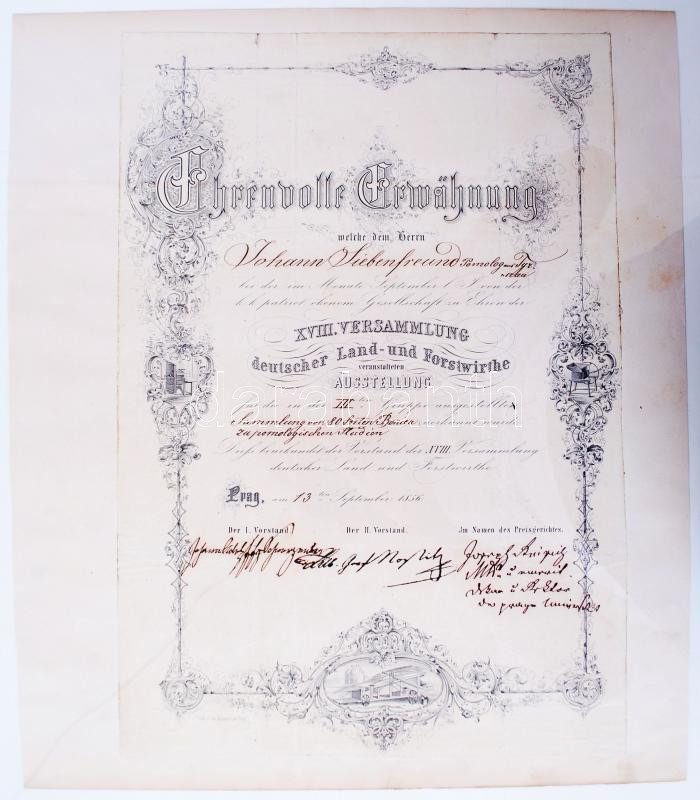 Ehrenvolle Erwähnung
welche dem Herrn
Johann Siebenfreund Pomolog aus Tyr
nau
bei der im Monate September l. J. von der
k. k. patriot. ökonom. Gesellschaft zu Ehren der
XVIII. VERSAMMLUNG
deutscher Land- und Forstwirthe
veranstalteten
AUSSTELLUNG
für die in der III ten Gruppe ausgestellte
Sammlung von 80 Sorten Birnen, zuerkannt wurde
zu pomologischen Studien
Dies beurkundet der Vorstand der XVIII. Versammlung
deutscher Land und Forstwirthe
Prag, am 13 ten September 1856.
Der I. Vorstand
Der II. Vorstand.
Im Namen des Preisgerichtes.
Johann Adolf Schwarzenberg
Alb. Graf Nostitz
Joseph
u
Dekan u Rektor
der prager
databank